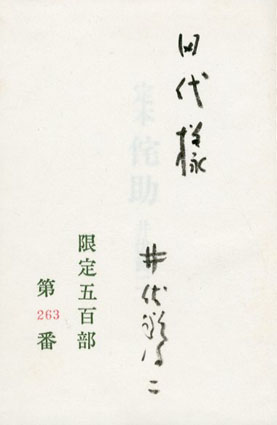 田代様
井伏鱒二
限定五百部
第263番